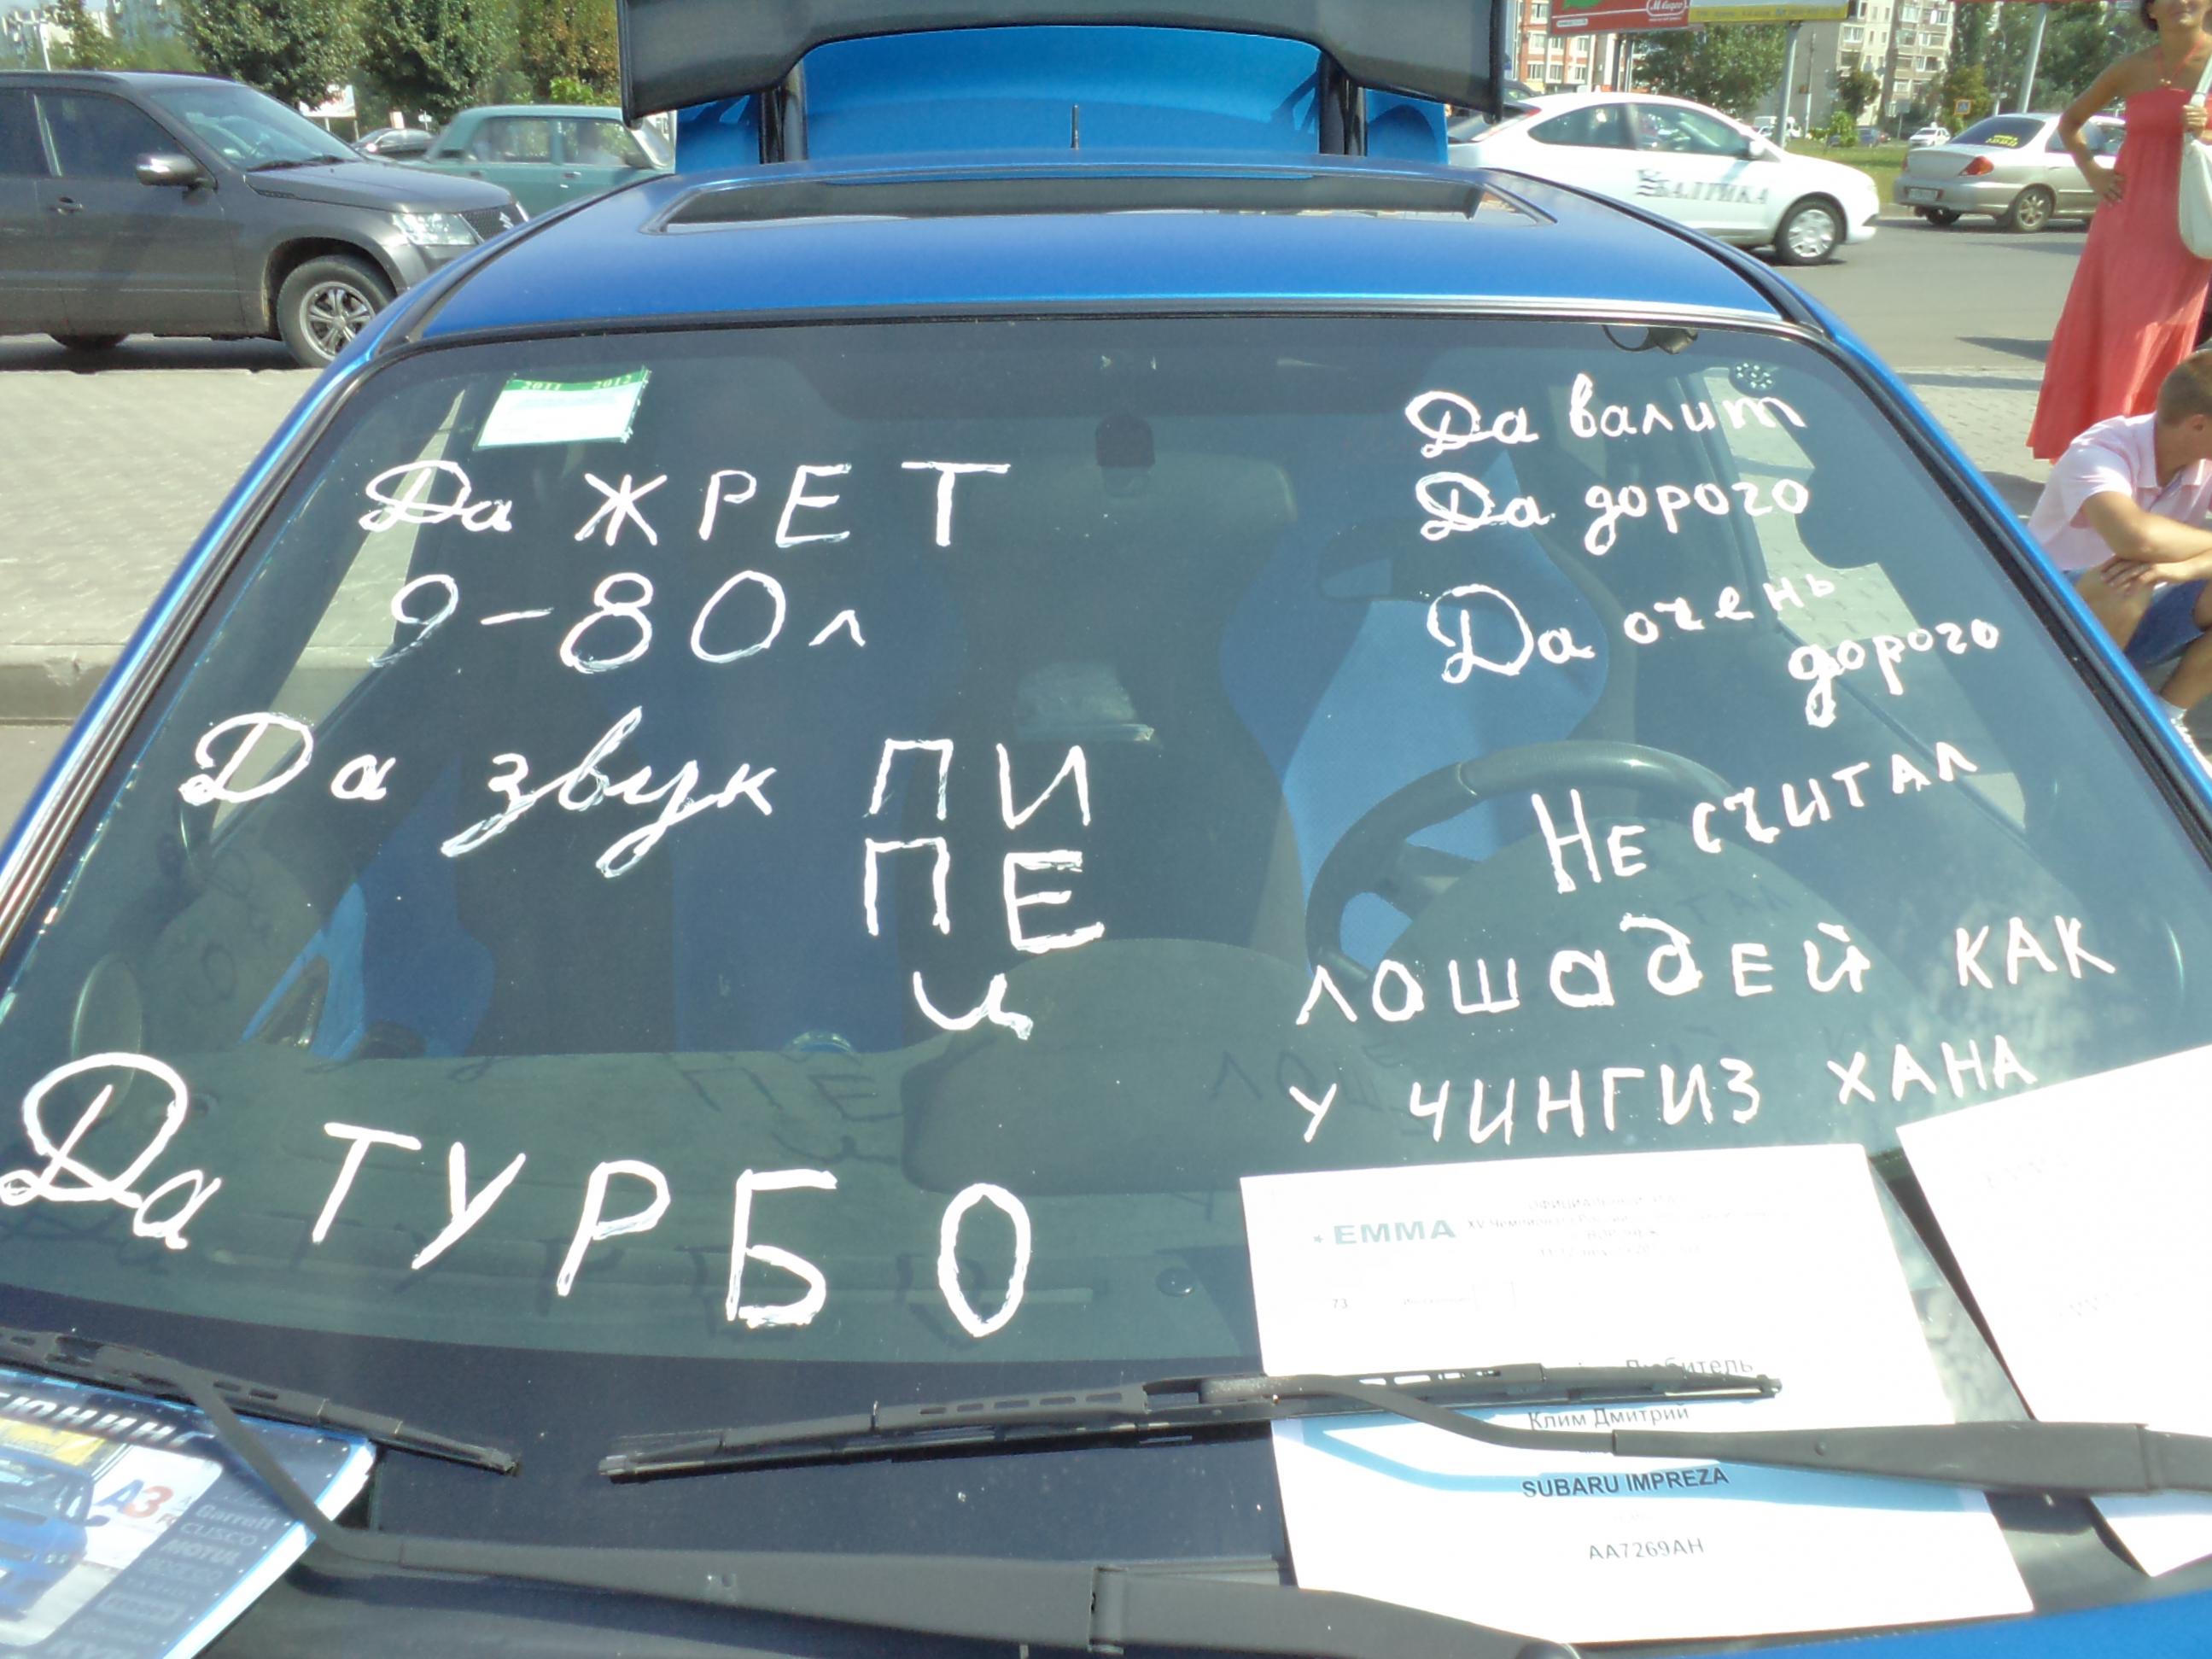 БАЛТИКА
2011 2012
Да ЖРЕТ
9-80л
Да звук ПИ
ПЕ
ц
Да ТУРБО
Да валит
Да дорого
Да очень
дорого
НЕ СЧИТАЛ
ЛОШАДЕЙ КАК
У ЧИНГИЗ ХАНА
EMMA
73
Любитель
Клим Дмитрий
SUBARU IMPREZA
AA7269AH
A3
Garrett
CUSCO
MOTUL